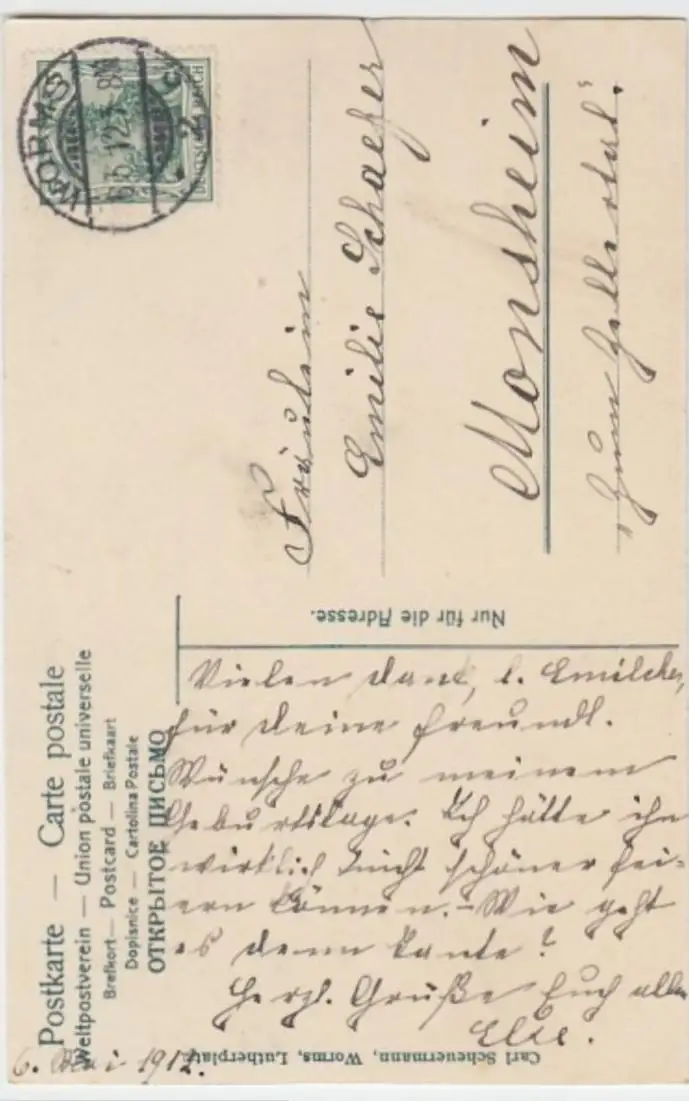 Postkarte — Carte postale
Weltpostverein — Union postale universelle
Brefkort — Postcard — Briefkaart
Dopisnice — Cartolina Postale
ОТКРЫТОЕ ПИСЬМО
WORMS
DEUTSCHES REICH
Fräulein
Emilie Schaefer
Monsheim
"Zum Zellertal".
Nur für die Adresse.
Vielen Dank, l. Emilchen,
für Deine freundl.
Wünsche zu meinem
Geburtstage. Ich hätte ihn
wirklich nicht schöner fei-
ern können. – Wie geht
es denn Tante?
Herzl. Grüße Euch allen
Else.
6. 1912.
Carl Scheuermann, Worms, Lutherplatz.